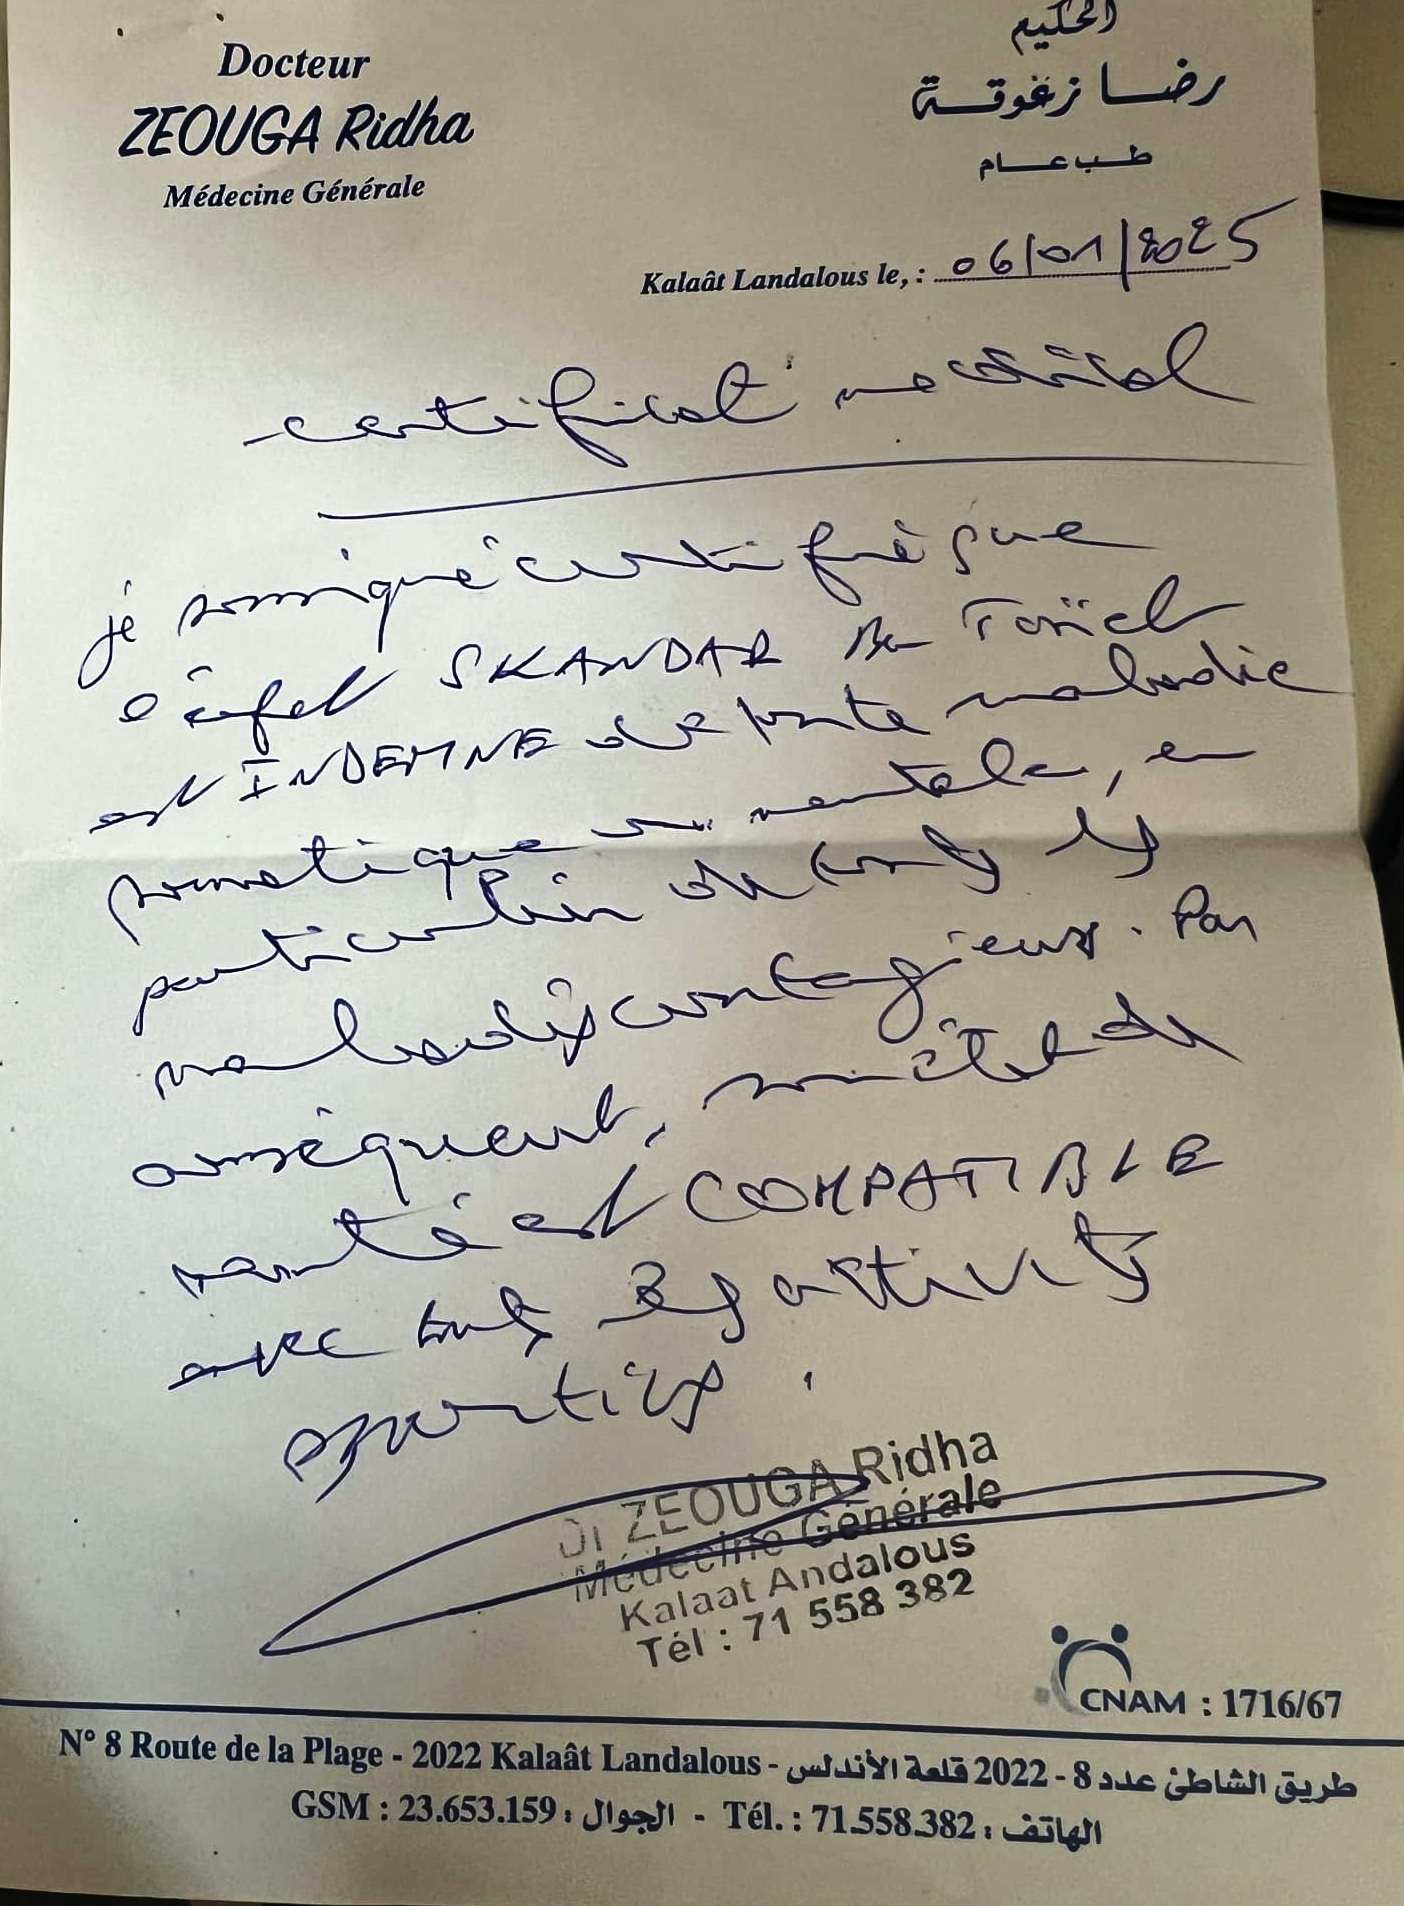 Docteur
ZEOUGA Ridha
Médecine Générale
الحكيم
رضا زغوقة
طب عام
Kalaât Landalous le, : 06/01/2025
certificat médical
je soussigné certifie que
l'enfant SKANDAR Ben
est INDEMNE de toute maladie
somatique ou mentale, en
particulier de toutes les
maladies contagieuses. Par
conséquent, son état de
santé est COMPATIBLE
avec toutes les activités
sportives.
Dr ZEOUGA Ridha
Médecine Générale
Kalaat Andalous
Tél : 71 558 382
CNAM : 1716/67
N° 8 Route de la Plage - 2022 Kalaât Landalous - طريق الشاطئ عدد 8 - 2022 قلعة الأندلس
GSM : 23.653.159 : الجوال - Tél. : 71.558.382 : الهاتف